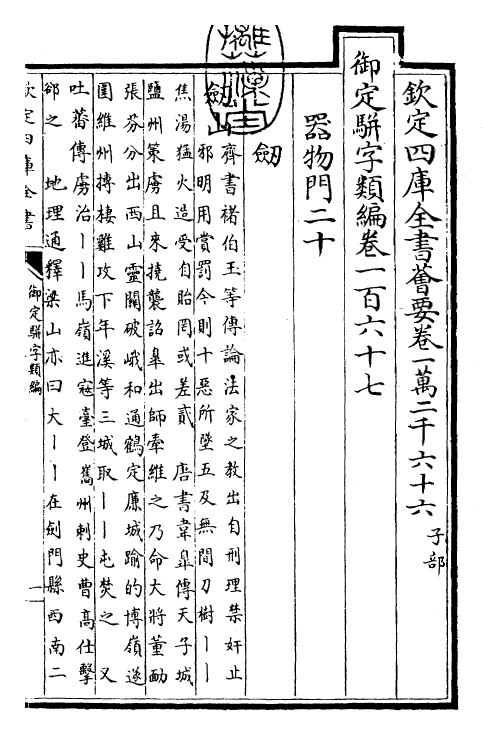 欽定四庫全書薈要卷一萬二千六十六 子部
御定駢字類編卷一百六十七
器物門二十
劒
劒山 齊書褚伯玉等傳論法家之教出自刑理禁奸止
邪明用賞罰今則十惡所墜五及無間刀樹丨丨
焦湯猛火造受自貽罔或差貳 唐書韋臯傳天子城
鹽州策虜且來撓襲詔臯出師牽維之乃命大將董勔
張芬分出西山靈關破峨和通鶴定廉城踰的博嶺遂
圍維州搏棲雞攻下羊溪等三城取丨丨屯焚之 又
吐蕃傳虜治丨丨馬嶺進寇臺登巂州刺史曹高仕擊
卻之 地理通釋梁山亦曰大丨丨在劍門縣西南二
欽定四庫全書
御定駢字類編
一